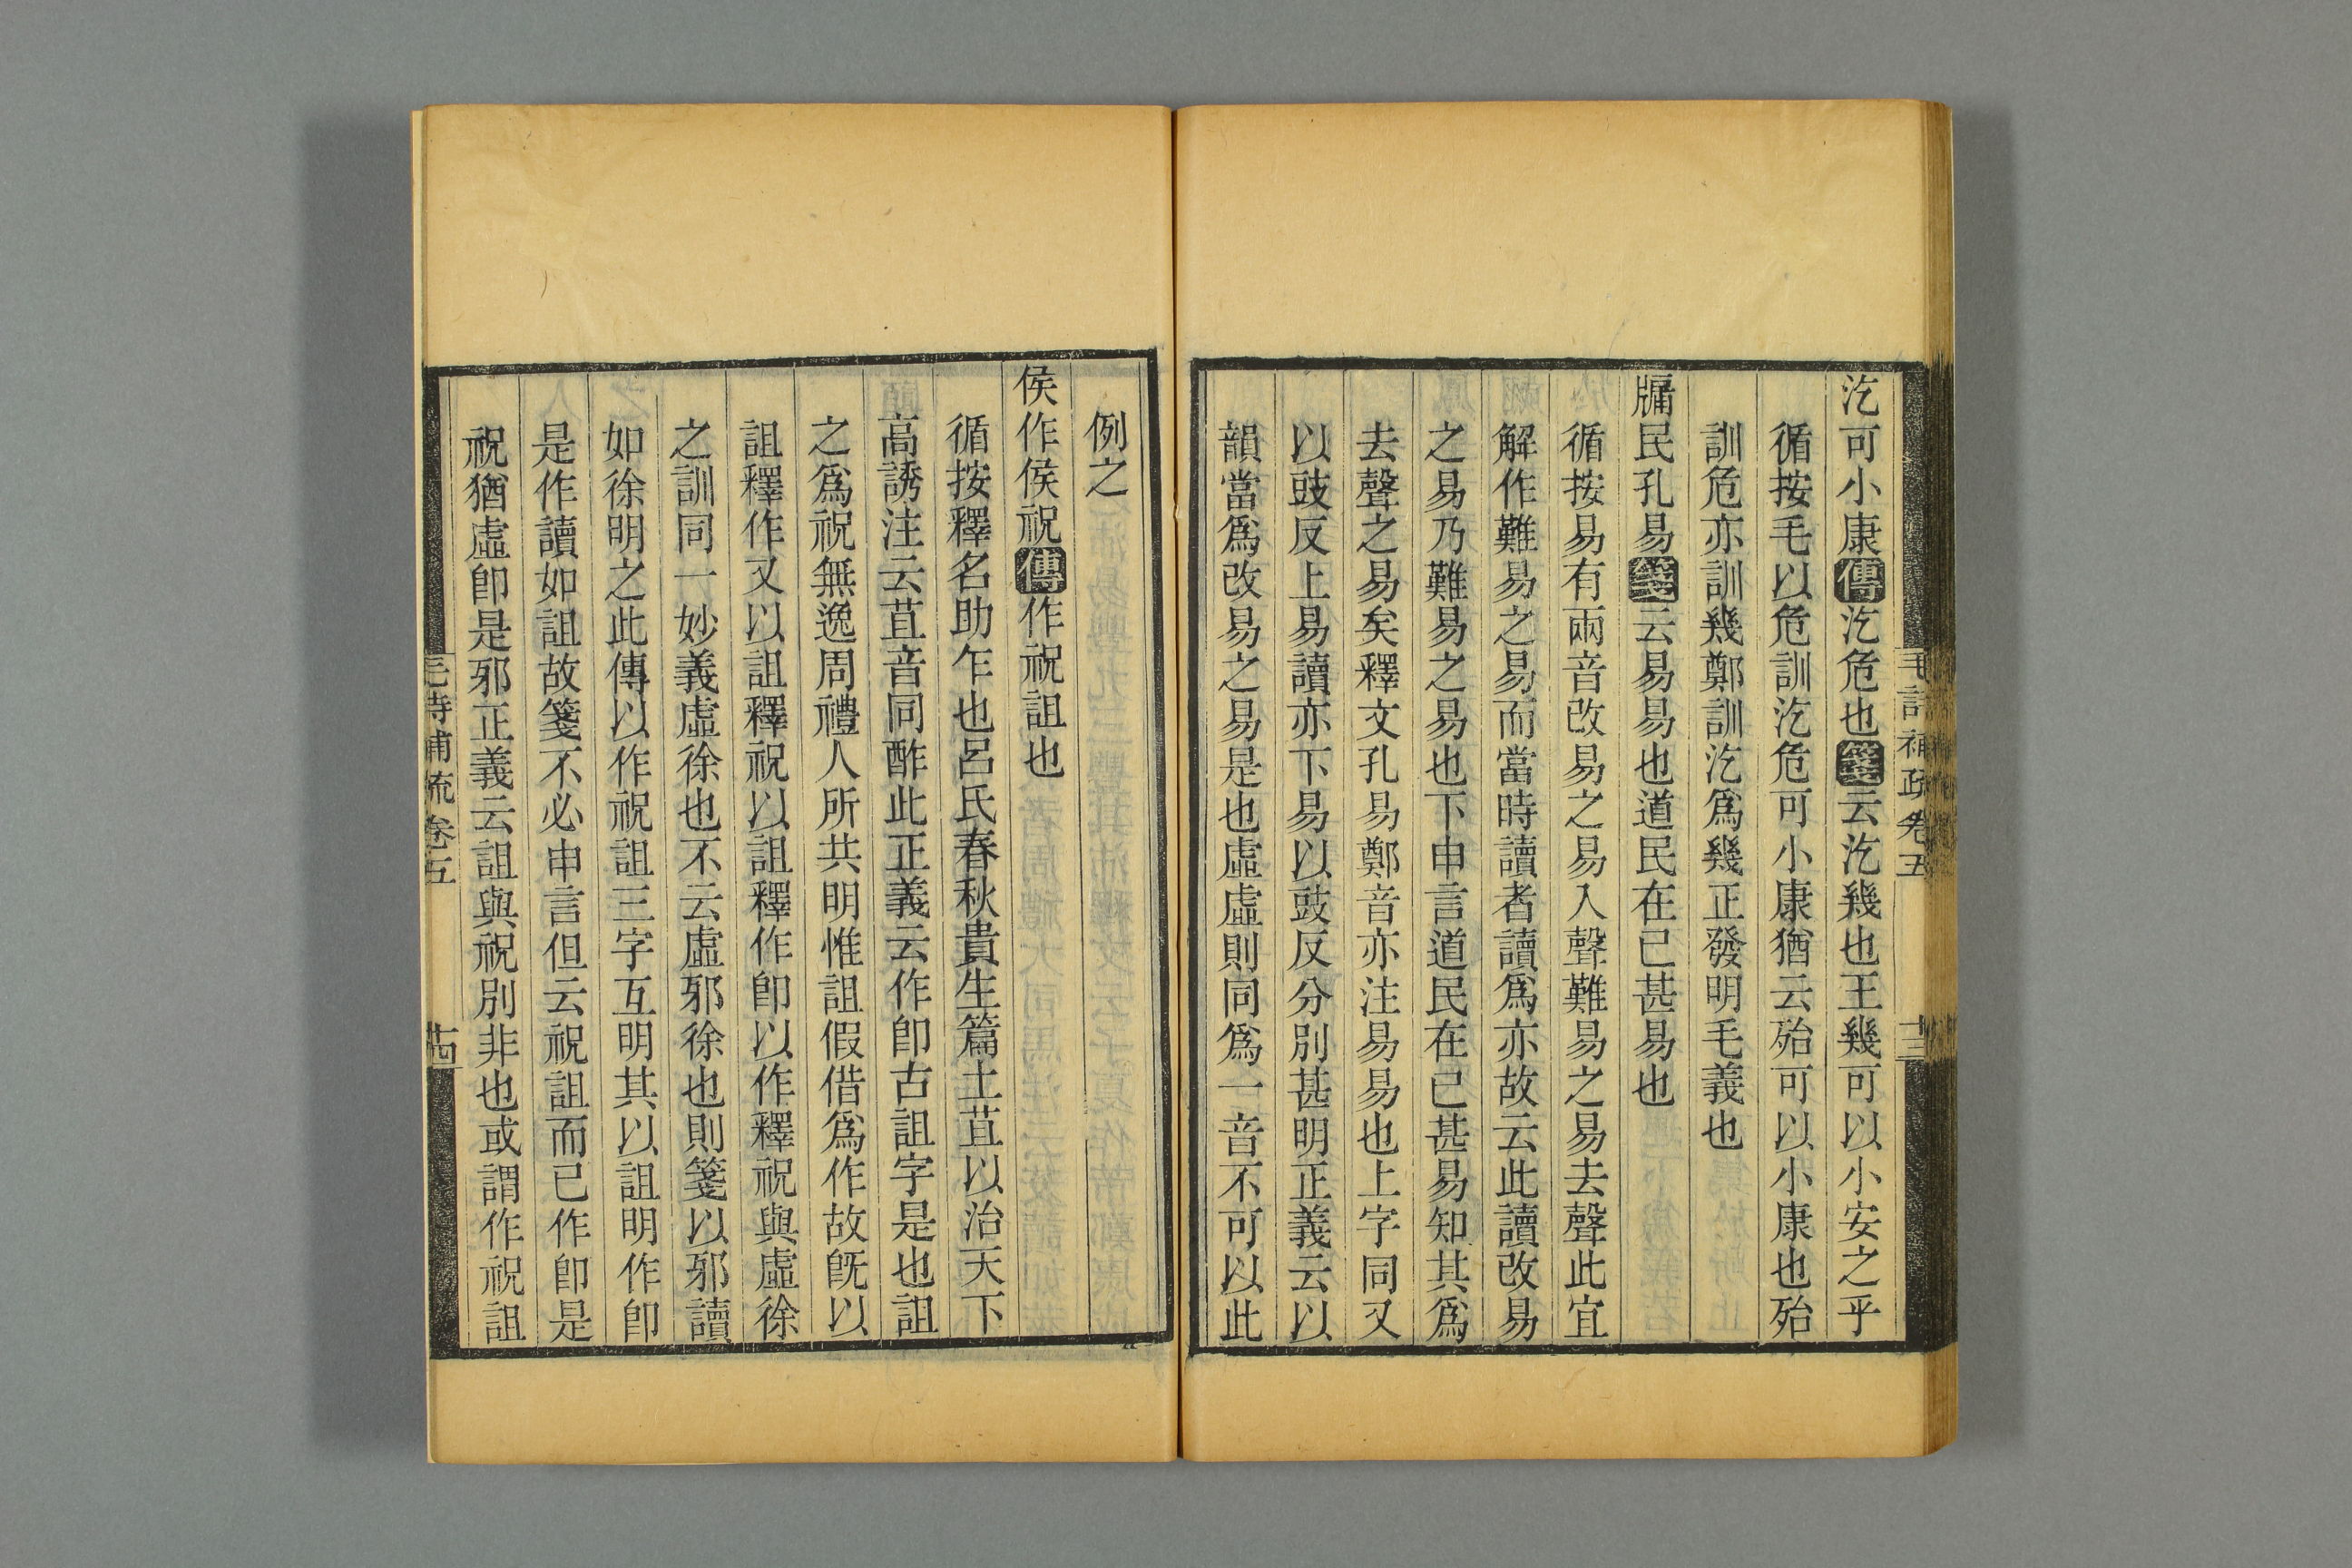 汔可小康傳汔危也箋云汔幾也王幾可以小安之乎
循按毛以危訓汔危可小康猶云殆可以小康也殆
訓危亦訓幾鄭訓汔爲幾正發明毛義也
牖民孔易箋云易易也道民在已甚易也
循按易有兩音改易之易入聲難易之易去聲此宜
解作難易之易而當時讀者讀爲亦故云此讀改易
之易乃難易之易也下申言道民在已甚易知其爲
去聲之易矣釋文孔易鄭音亦注易易也上字同又
以豉反上易讀亦下易以豉反分別甚明正義云以
韻當爲改易之易是也虛虛則同爲一音不可以此
毛詩補疏卷五
十三
例之
侯作侯祝傳作祝詛也
循按釋名助乍也呂氏春秋貴生篇土苴以治天下
高誘注云苴音同酢此正義云作卽古詛字是也詛
之爲祝無逸周禮人所共明惟詛假借爲作故旣以
詛釋作又以詛釋祝以詛釋作卽以作釋祝與虛徐
之訓同一妙義虛徐也不云虛邪徐也則箋以邪讀
如徐明之此傳以作祝詛三字互明其以詛明作卽
是作讀如詛故箋不必申言但云祝詛而已作卽是
祝猶虛卽是邪正義云詛與祝別非也或謂作祝詛
毛詩補疏卷五
十四